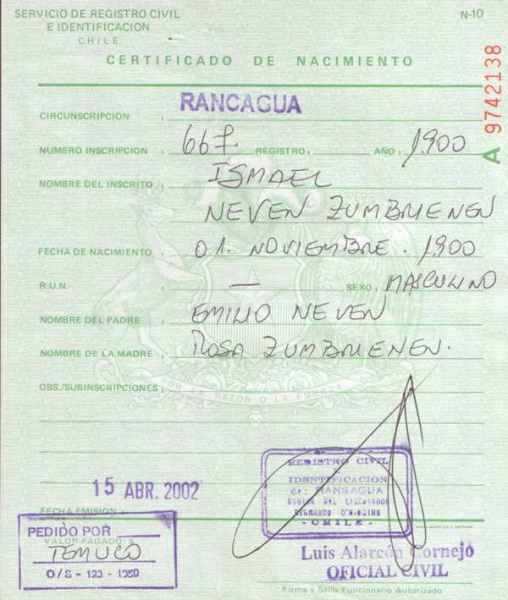 SERVICIO DE REGISTRO CIVIL
E IDENTIFICACION
CHILE
N-10
CERTIFICADO DE NACIMIENTO
A 9742138
CIRCUNSCRIPCION : RANCAGUA
NUMERO INSCRIPCION : 667. REGISTRO : AÑO : 1.900
NOMBRE DEL INSCRITO : ISMAEL
NEVEN ZUMBRIENEN
FECHA DE NACIMIENTO : 01. NOVIEMBRE. 1.900
R.U.N. : — SEXO : MASCULINO
NOMBRE DEL PADRE : EMILIO NEVEN
NOMBRE DE LA MADRE : ROSA ZUMBRIENEN.
OBS./SUBINSCRIPCIONES :
15 ABR. 2002
FECHA EMISION
PEDIDO POR
VALOR PAGADO $
TEMUCO
O/S - 123 - 1989
REGISTRO CIVIL
IDENTIFICACION
RANCAGUA
- CHILE -
Luis Alarcón Cornejo
OFICIAL CIVIL
Firma y Sello Funcionario Autorizado